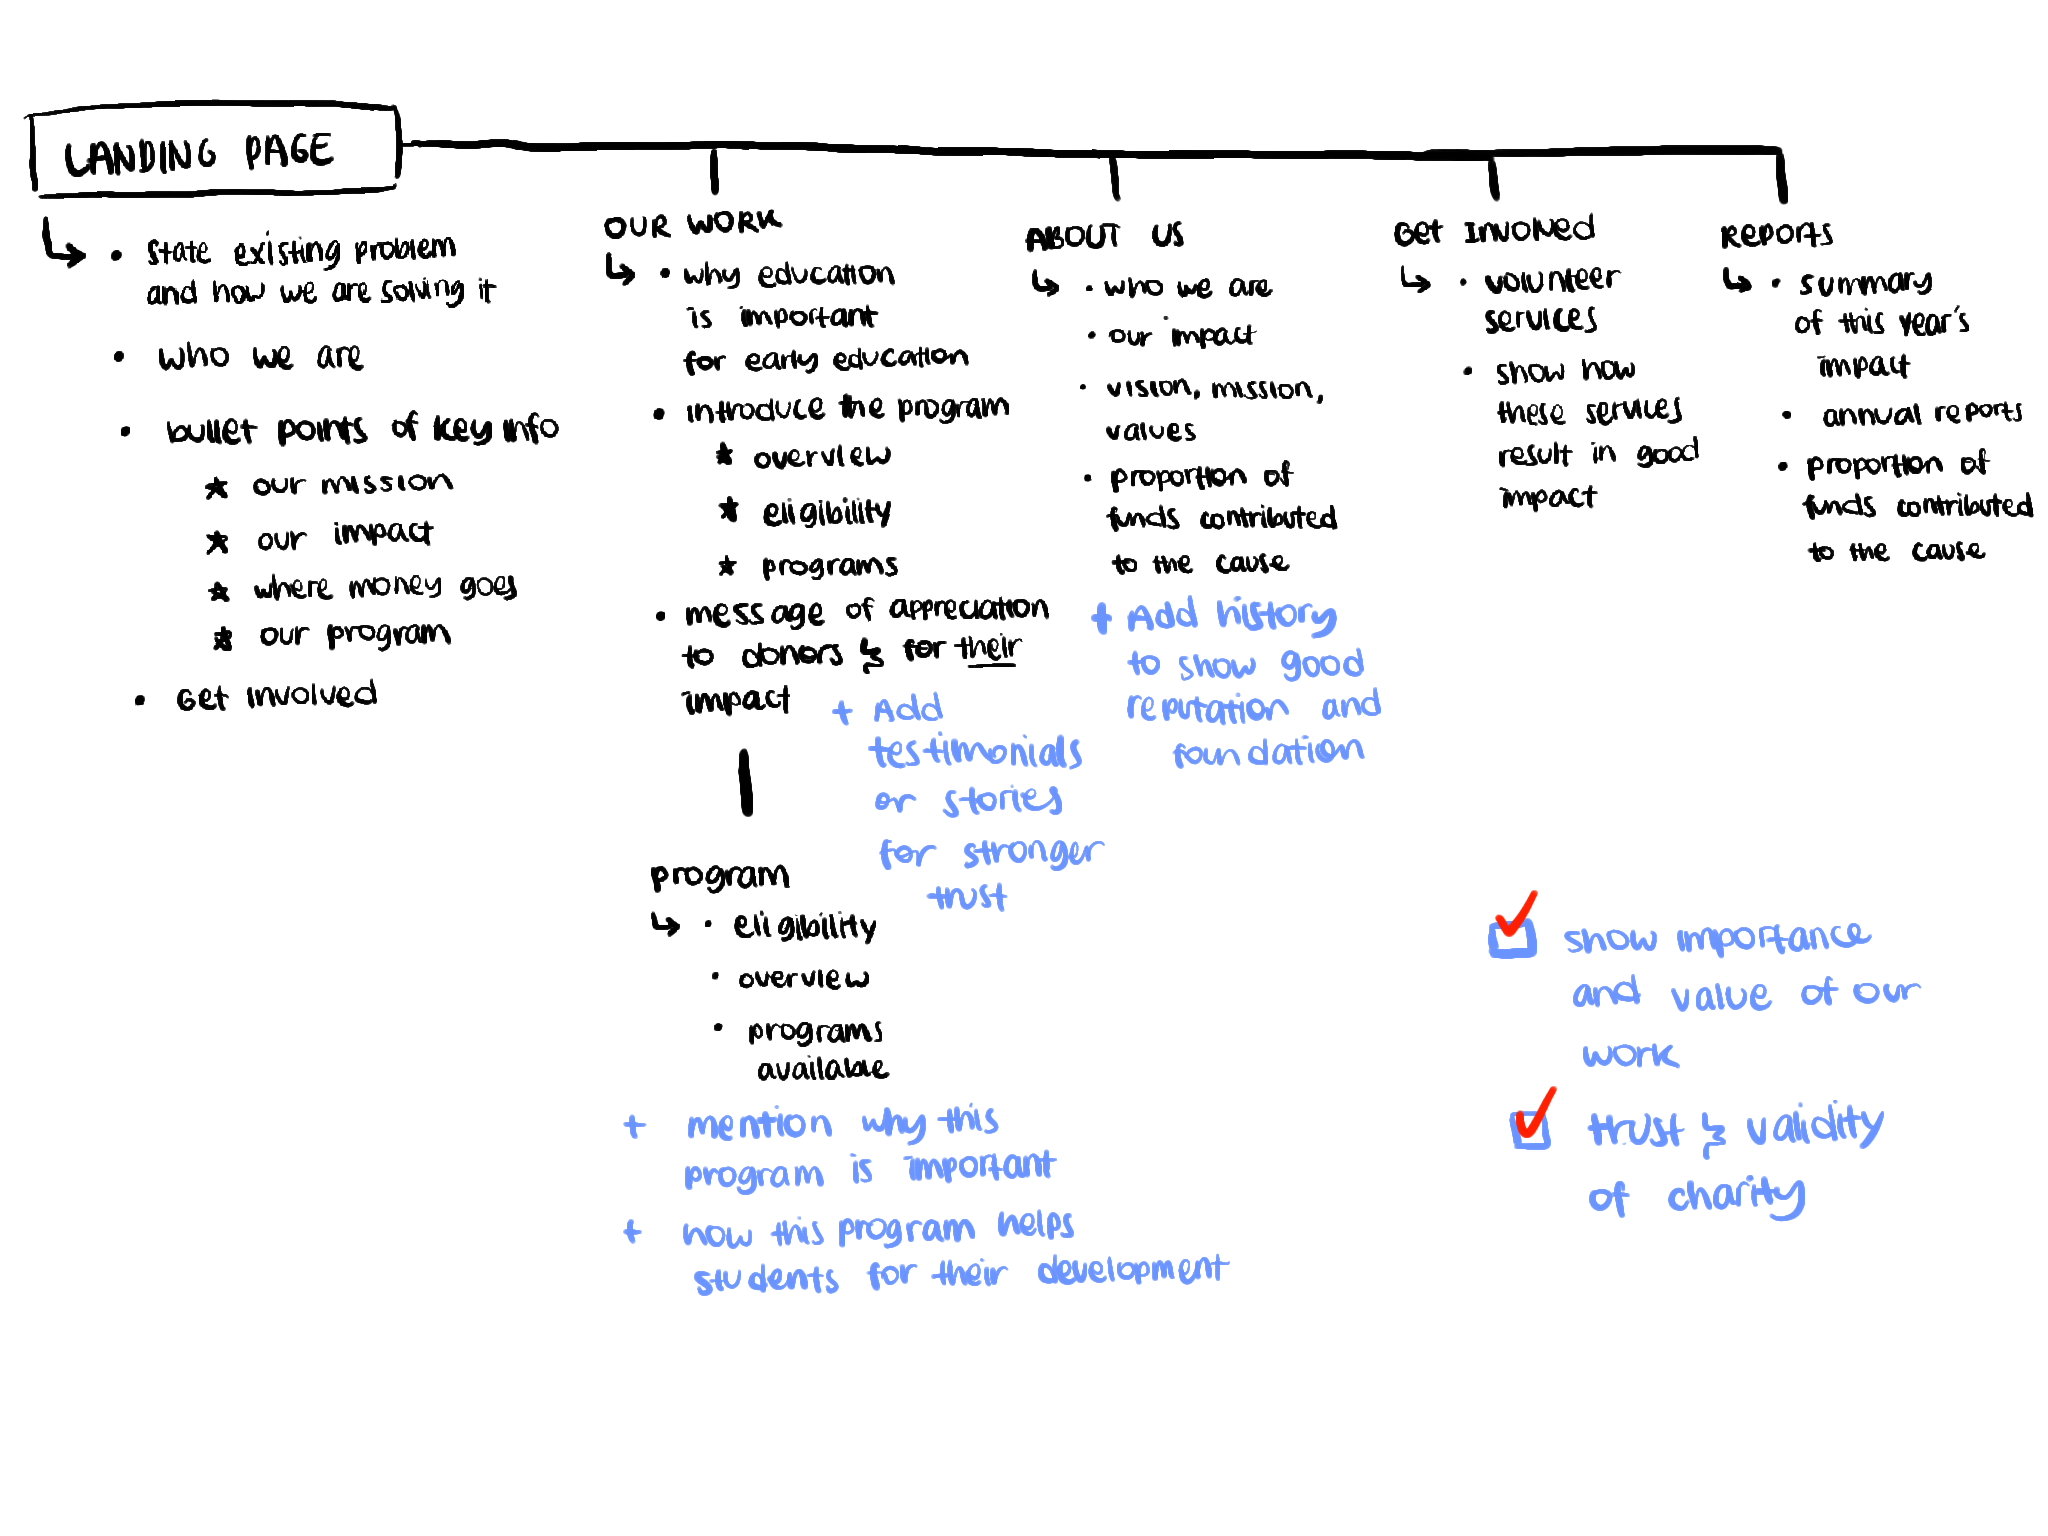 LANDING PAGE
• state existing problem
and how we are solving it
• who we are
• bullet points of key info
* our mission
* our impact
* where money goes
* our program
• Get involved
OUR WORK
• why education
is important
for early education
• introduce the program
* overview
* eligibility
* programs
• message of appreciation
to donors & for their
impact
+ Add
testimonials
or stories
for stronger
trust
program
• eligibility
• overview
• programs
available
+ mention why this
program is important
+ how this program helps
students for their development
ABOUT US
• who we are
• our impact
• vision, mission,
values
• proportion of
funds contributed
to the cause
+ Add history
to show good
reputation and
foundation
Get Involved
• volunteer
services
• show how
these services
result in good
impact
Reports
• summary
of this year's
impact
• annual reports
• proportion of
funds contributed
to the cause
show importance
and value of our
work
trust & validity
of charity